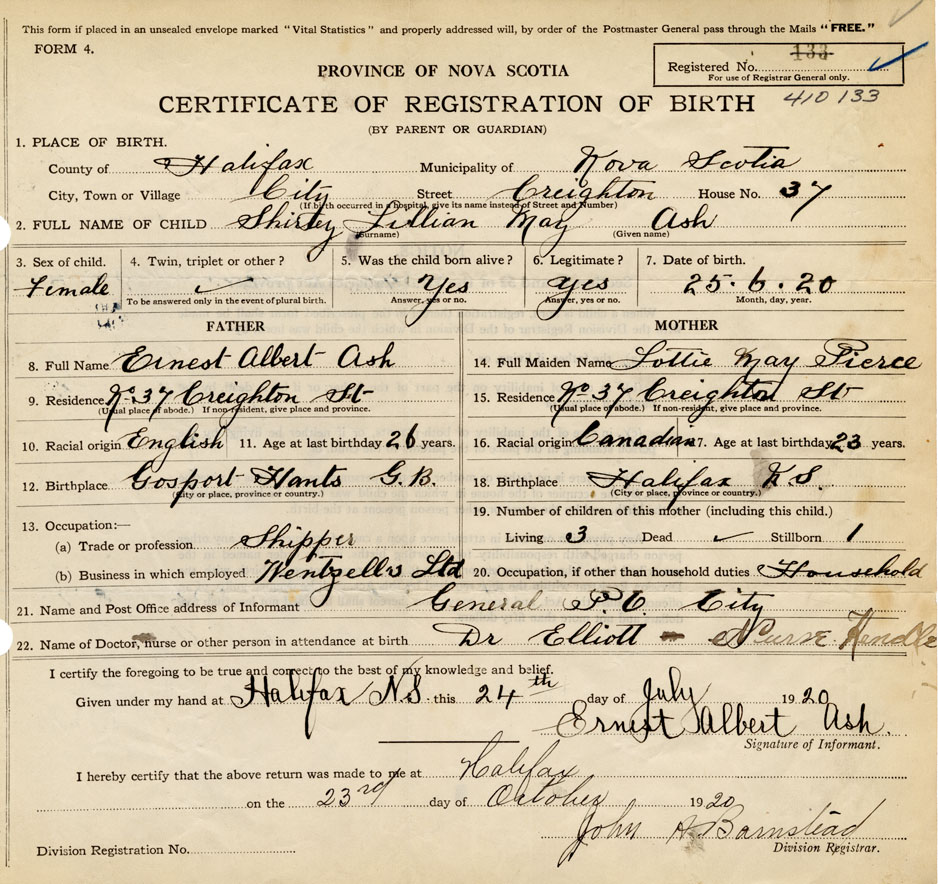 This form if placed in an unsealed envelope marked "Vital Statistics" and properly addressed will, by order of the Postmaster General pass through the Mails "FREE."
FORM 4.
133
Registered No.
For use of Registrar General only.
PROVINCE OF NOVA SCOTIA
CERTIFICATE OF REGISTRATION OF BIRTH 410 133
(BY PARENT OR GUARDIAN)
1. PLACE OF BIRTH.
County of Halifax Municipality of Nova Scotia
City, Town or Village City Street Creighton House No. 37
(If birth occurred in a hospital, give its name instead of Street and Number)
2. FULL NAME OF CHILD Shirley Lillian May Ash
(Surname) (Given name)
3. Sex of child. 4. Twin, triplet or other? 5. Was the child born alive? 6. Legitimate? 7. Date of birth.
Female Yes Yes 25.6.20
To be answered only in the event of plural birth. Answer, yes or no. Answer, yes or no. Month, day, year.
FATHER MOTHER
8. Full Name Ernest Albert Ash 14. Full Maiden Name Lottie May Pierce
9. Residence No 37 Creighton St 15. Residence No 37 Creighton St
(Usual place of abode.) If non-resident, give place and province. (Usual place of abode.) If non-resident, give place and province.
10. Racial origin English 11. Age at last birthday 26 years. 16. Racial origin Canadian 17. Age at last birthday 23 years.
12. Birthplace Gosport Hants G.B. 18. Birthplace Halifax N.S.
(City or place, province or country.) (City or place, province or country.)
19. Number of children of this mother (including this child.)
13. Occupation:—
(a) Trade or profession Shipper Living 3 Dead Stillborn 1
(b) Business in which employed Wentzells Ltd 20. Occupation, if other than household duties Household
21. Name and Post Office address of Informant General P.O. City
22. Name of Doctor, nurse or other person in attendance at birth Dr Elliott - Nurse
I certify the foregoing to be true and correct to the best of my knowledge and belief.
Given under my hand at Halifax N.S. this 24th day of July 1920
Ernest Albert Ash.
Signature of Informant.
I hereby certify that the above return was made to me at Halifax
on the 23rd day of October 1920
John A Barnstead
Division Registrar.
Division Registration No.